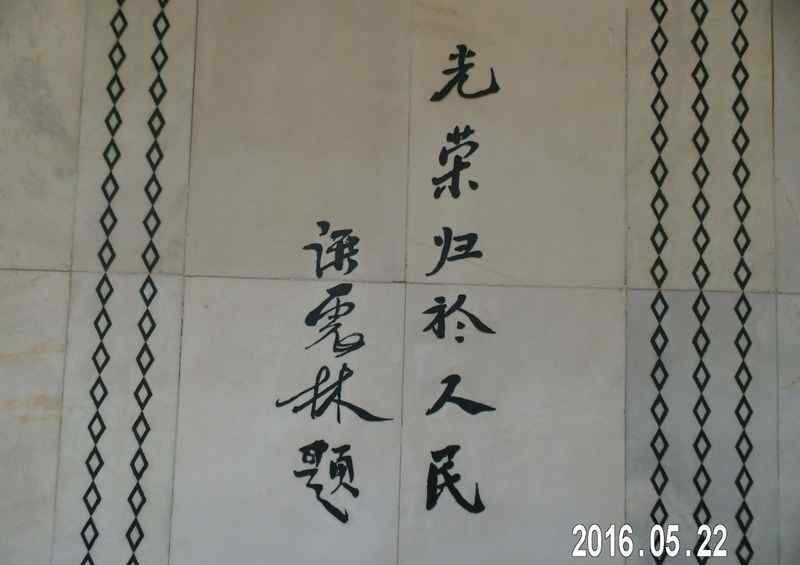 光荣归於人民
谭震林题
2016.05.22